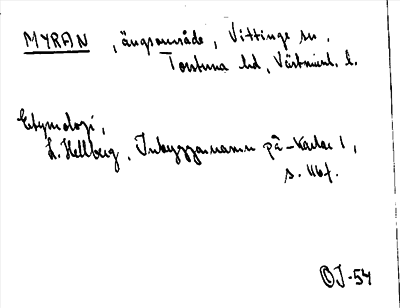 MYRAN, ängsområde, Vittinge sn,
Torstuna hd, Västmanl. l.
Etymologi,
L. Hellberg, Inbyggarnamn på -karlar 1,
s. 116 f.
OJ-54